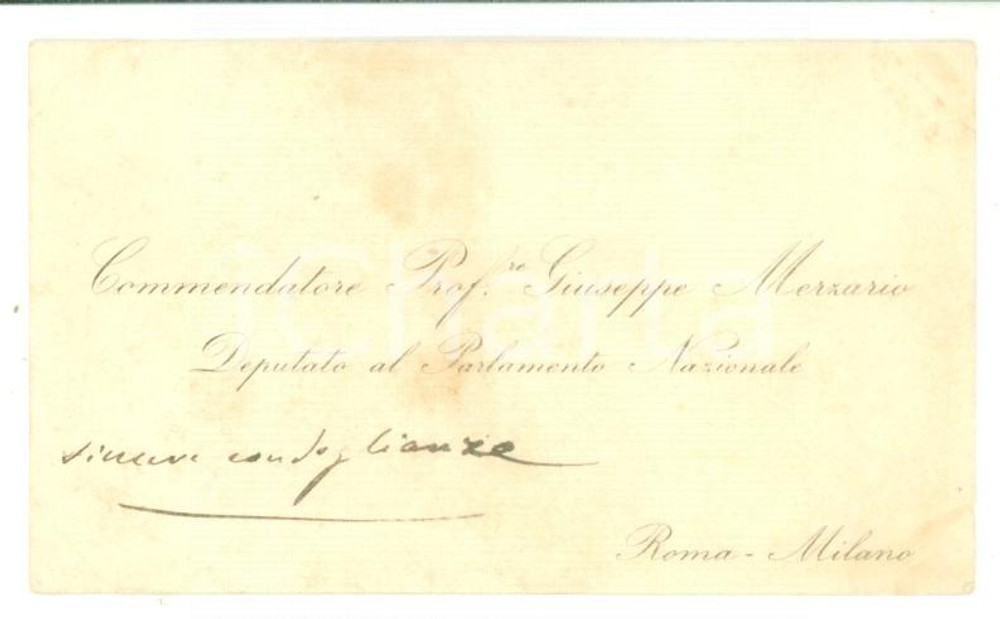 Commendatore Prof.re Giuseppe Merzario
Deputato al Parlamento Nazionale
sincere condoglianze
Roma - Milano